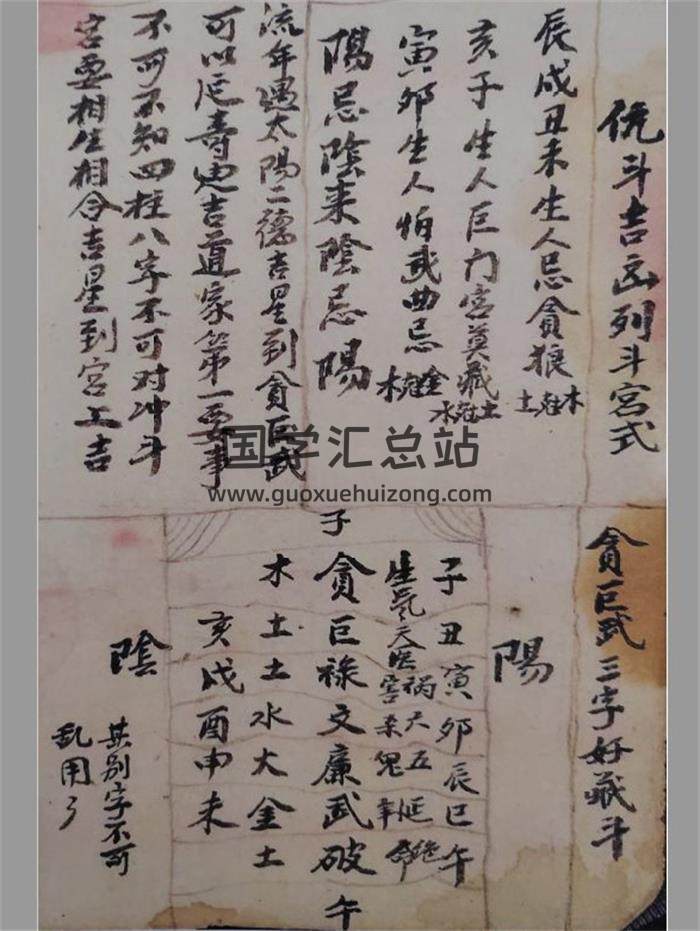 斗吉凶列斗宫式
辰戌丑未生人忌貪狼木尅土
亥子生人巨门宫莫藏土尅水
寅卯生人怕武曲忌金尅木
陽忌陰来陰忌陽
流年遇太陽二德吉星到貪巨武
可以延寿迪吉道家第一要事
不可不知四柱八字不可对冲斗
宫要相生相合吉星到宫上吉
国学汇总站
www.guoxuehuizong.com
貪巨武三字好藏斗
陽
子
子丑寅卯辰巳午
生氣天医祸害六杀五鬼延年絶命
貪巨禄文廉武破
午
木土土水火金土
亥戌酉申未
陰
其别字不可
乱用了